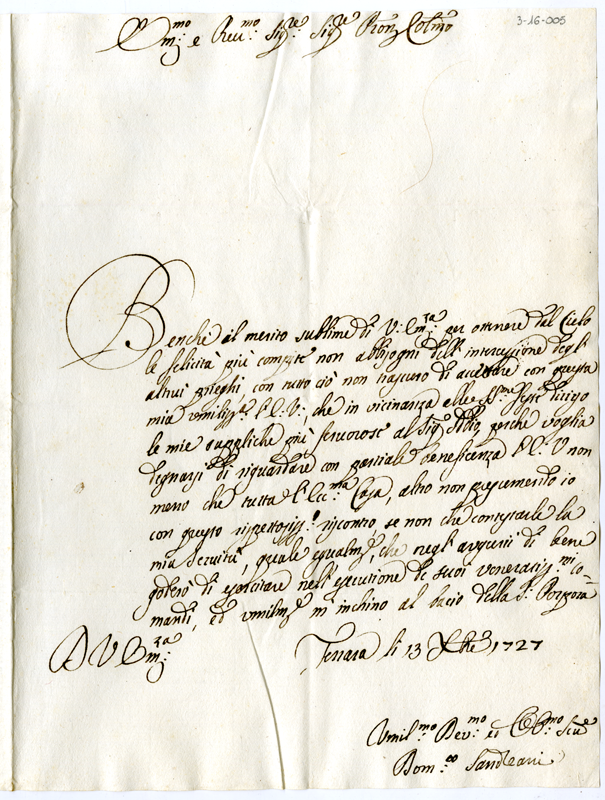 3-16-005
Em:mo e Rev:mo Sig:re Sig:re Pron Colmo
Benche il merito sublime di V: Em:za per ottenere dal Cielo
le felicità più compite non abbisogni dell' intercessione degl'
altrui prieghi, con tutto ciò non trascuro di accertare con questa
mia umiliss:a l'E: V:, che in vicinanza elle SS:me Feste dirigo
le mie suppliche più fervorose al Sig: Iddio, perche voglia
degnarsi di riguardare con parziale beneficenza l'E: V non
meno che tutta l'Ecc:ma Casa, altro non presumendo io
con questo rispettosiss:o riscontro se non che contestarle la
mia Servitù, quale egualm:e, che negl' augurij di bene
goderò di esercitare nell' esecutione de suoi veneratiss:mi co=
mandi, ed umilm:e m'inchino al bacio della S: Porpora
D V Em:za
Ferrara li 13 Xbre 1727
Umil:mo Dev:mo ed Obb:mo Ser:e
Dom:co